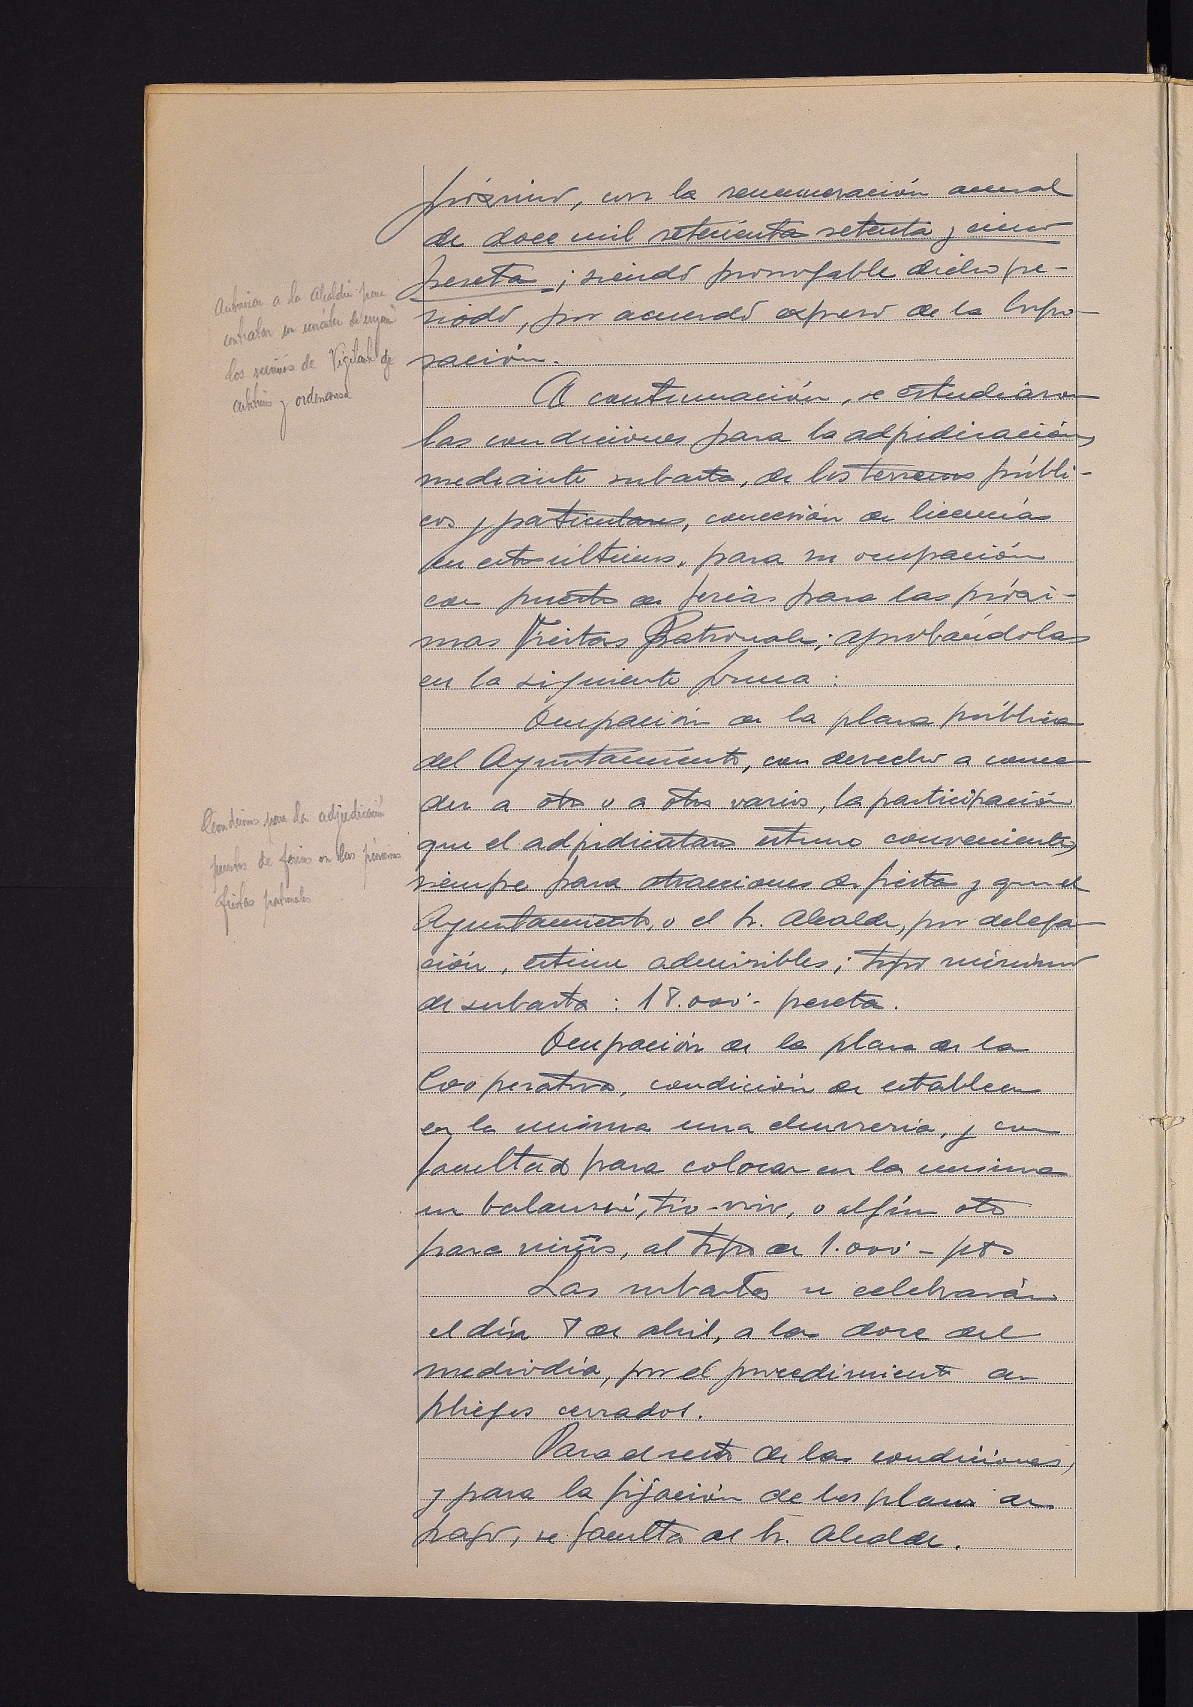 próximo, con la remuneración anual
de doce mil setecientas setenta y cinco
pesetas; siendo prorrogable dicho pe-
riodo, por acuerdo expreso de la Corpo-
ración.
Autorizar a la Alcaldía para
contratar en carácter de
los servicios de Vigilante de
arbitrios y ordenanza
A continuación, se estudiaron
las condiciones para la adjudicación,
mediante subasta, de los terrenos públi-
cos y particulares, concesión de licencias
en estos últimos, para su ocupación
con puestos de ferias para las próxi-
mas Fiestas Patronales; aprobándolas
en la siguiente forma:
Ocupación de la plaza pública
del Ayuntamiento, con derecho a conce-
der a otro u a otros varios, la participación
que el adjudicatario estime conveniente,
siempre para atracciones de fiesta y que el
Ayuntamiento, o el Sr. Alcalde, por delega-
ción, estime admisibles; tipo mínimo
de subasta: 18.000'- pesetas.
Condiciones para la adjudicación
puestos de ferias en las próximas
fiestas patronales
Ocupación de la plaza de la
Cooperativa, condición de establecer
en la misma una churrería, y con
facultad para colocar en la misma
un balancé, tío-vivo, o algún otro
para niños, al tipo de 1.000'- pts
Las subastas se celebrarán
el día 8 de abril, a las doce del
mediodía, por el procedimiento de
pliegos cerrados.
Para el resto de las condiciones,
y para la fijación de los plazos de
pago, se faculta al Sr. Alcalde.